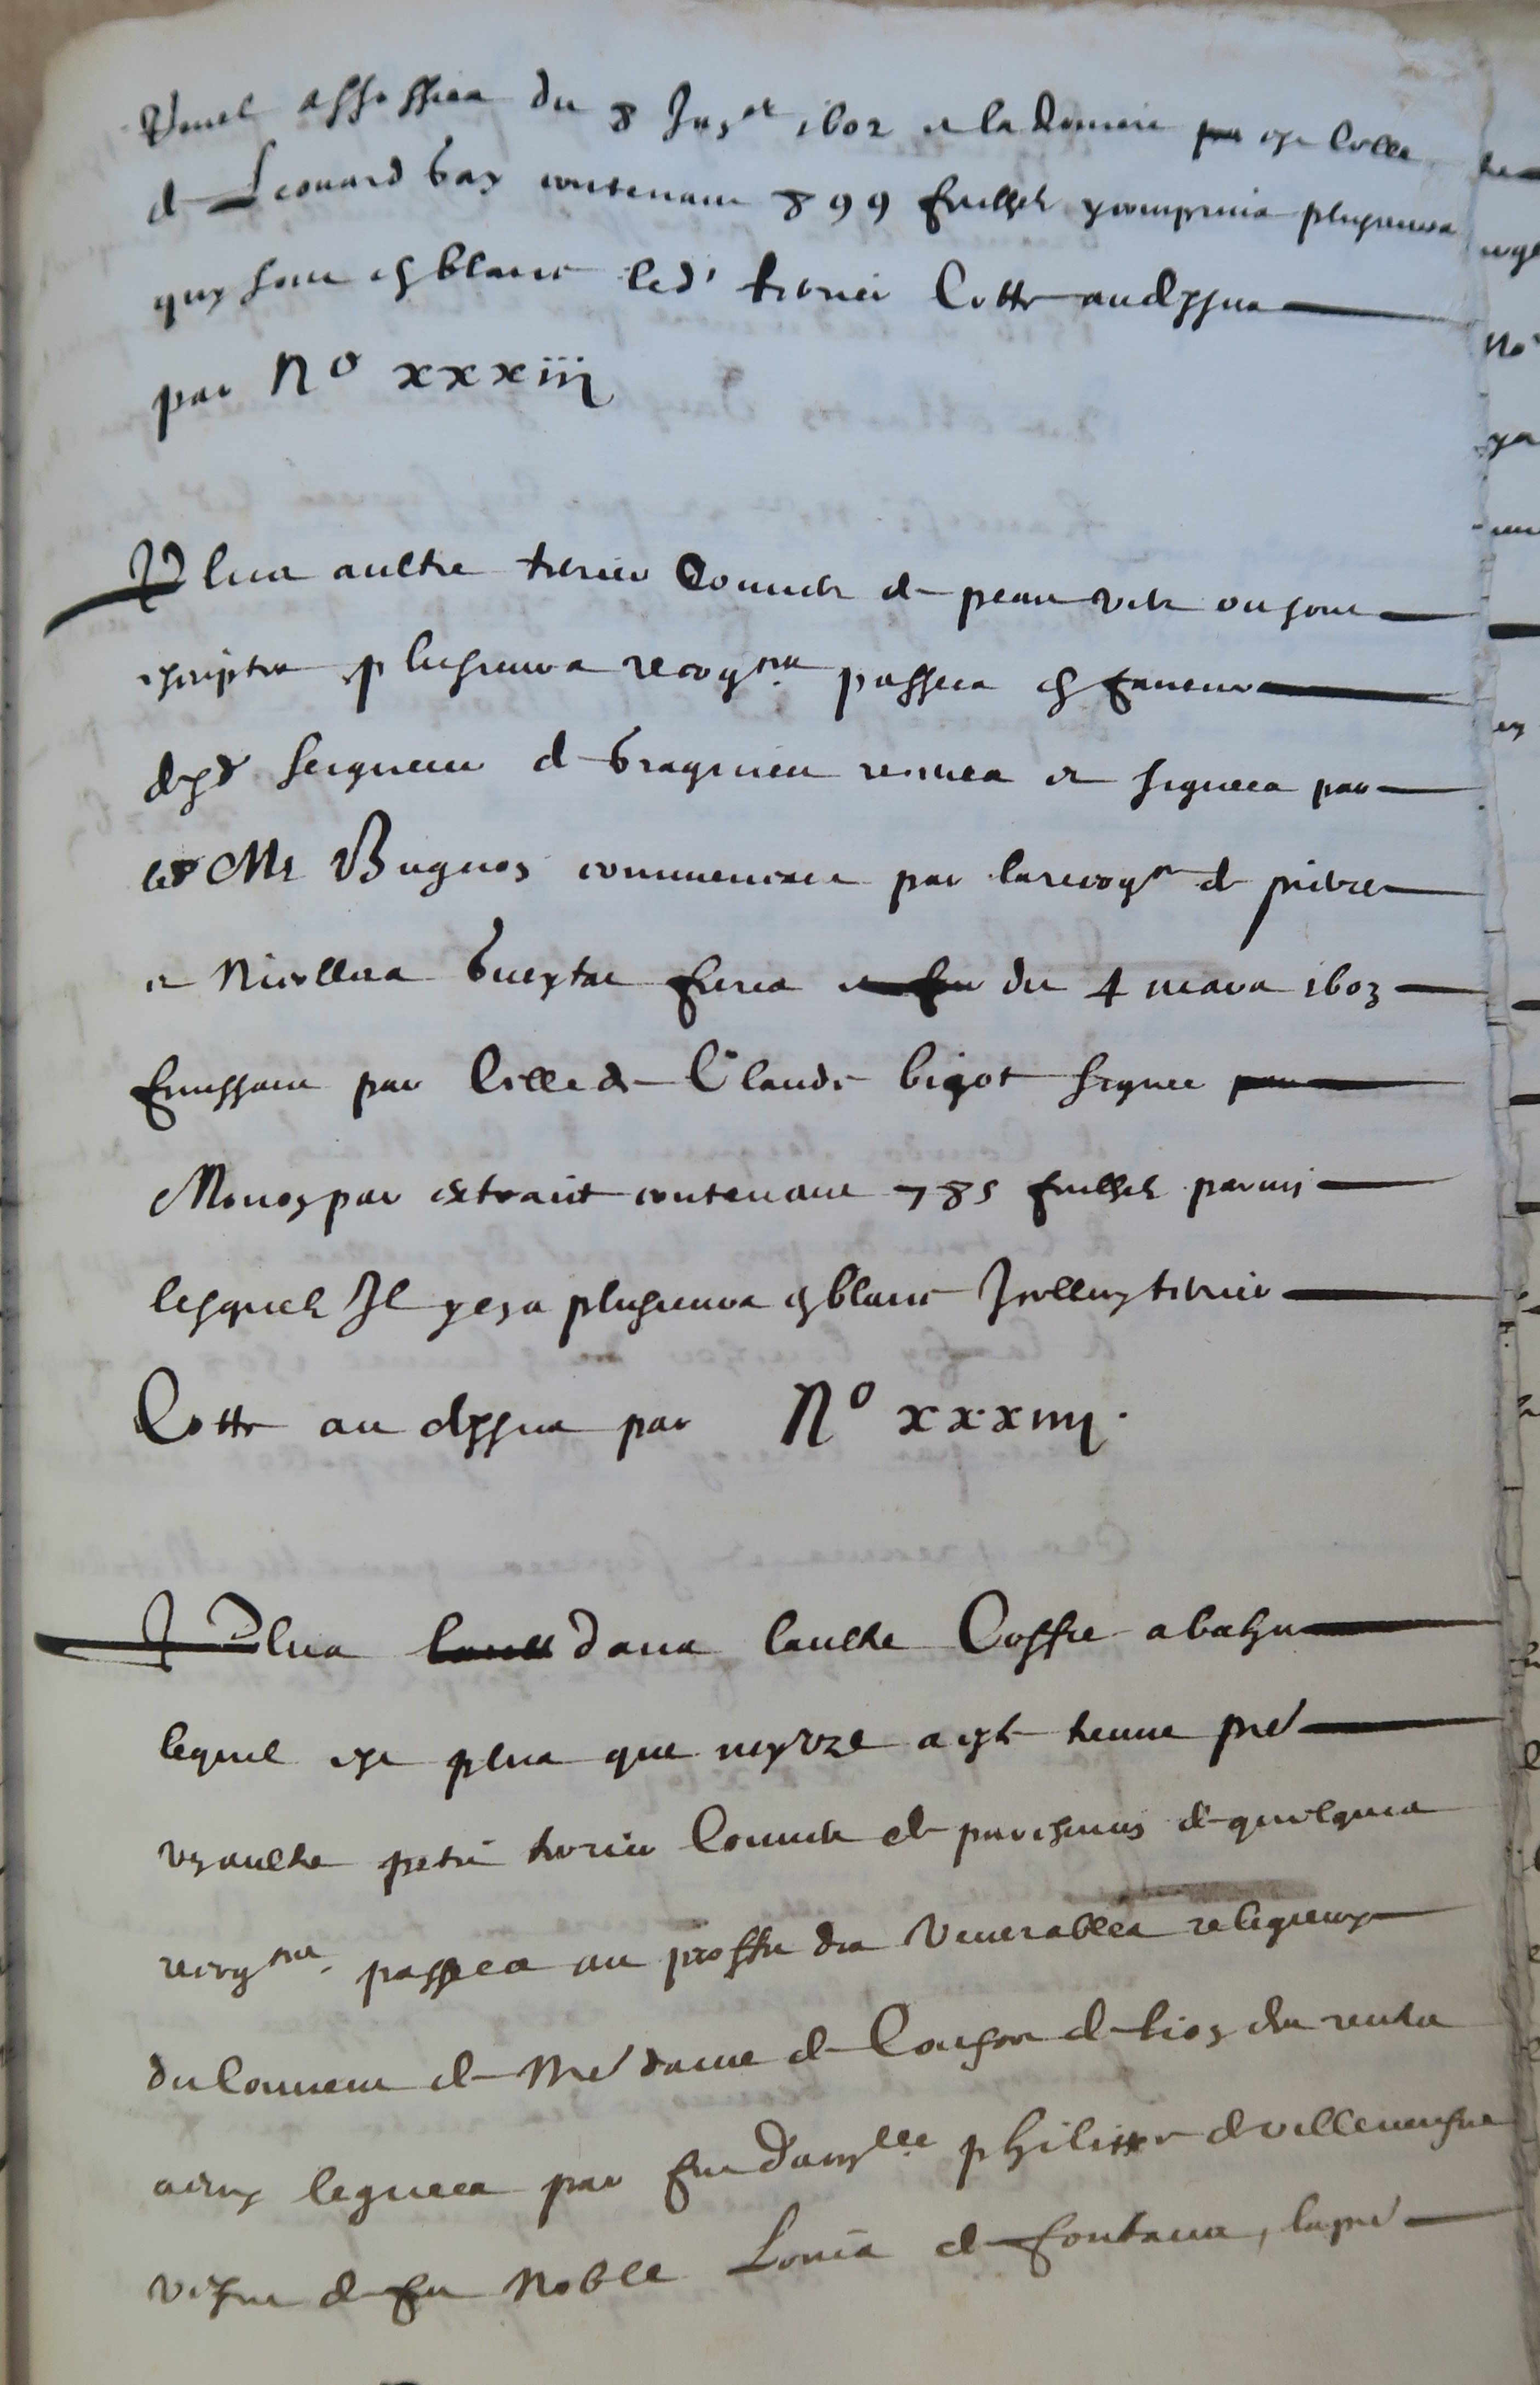 du 8 1602 et la derniere est celle
de Leonard bay contenant 899 feullietz y comprins plusieurs
quy sont en blanc led' terrier Cotte au dessus
par No xxxiij
Plus aultre terrier Couvert de peau verte ou sont
escriptes plusieurs recogns passees en faveur
desd seigneur de bragnieu receues et signees par
led Me Bugnon commencant par la recogn de pierre
et Nicollas freres et feu du 4 mars 1603
finissant par Celle de Claude bigot signee par
par extraict contenant 785 feullietz parmi
lesquelz Il y en a plusieurs en blanc Icelluy terrier
Cotte au dessus par No xxxiiij.
Plus dans laultre Coffre abahu
lequel est plus que a este treuve pre
un aultre petit terrier Couvert de parchemin de quelques
recogns passees au proffit des Venerables religieux
du Couvent de Nre dame de Confort de lion des rentes
a eux leguees par feu damlle philippe de villeneufve
vefve de feu Noble Louis de fontana, la pre